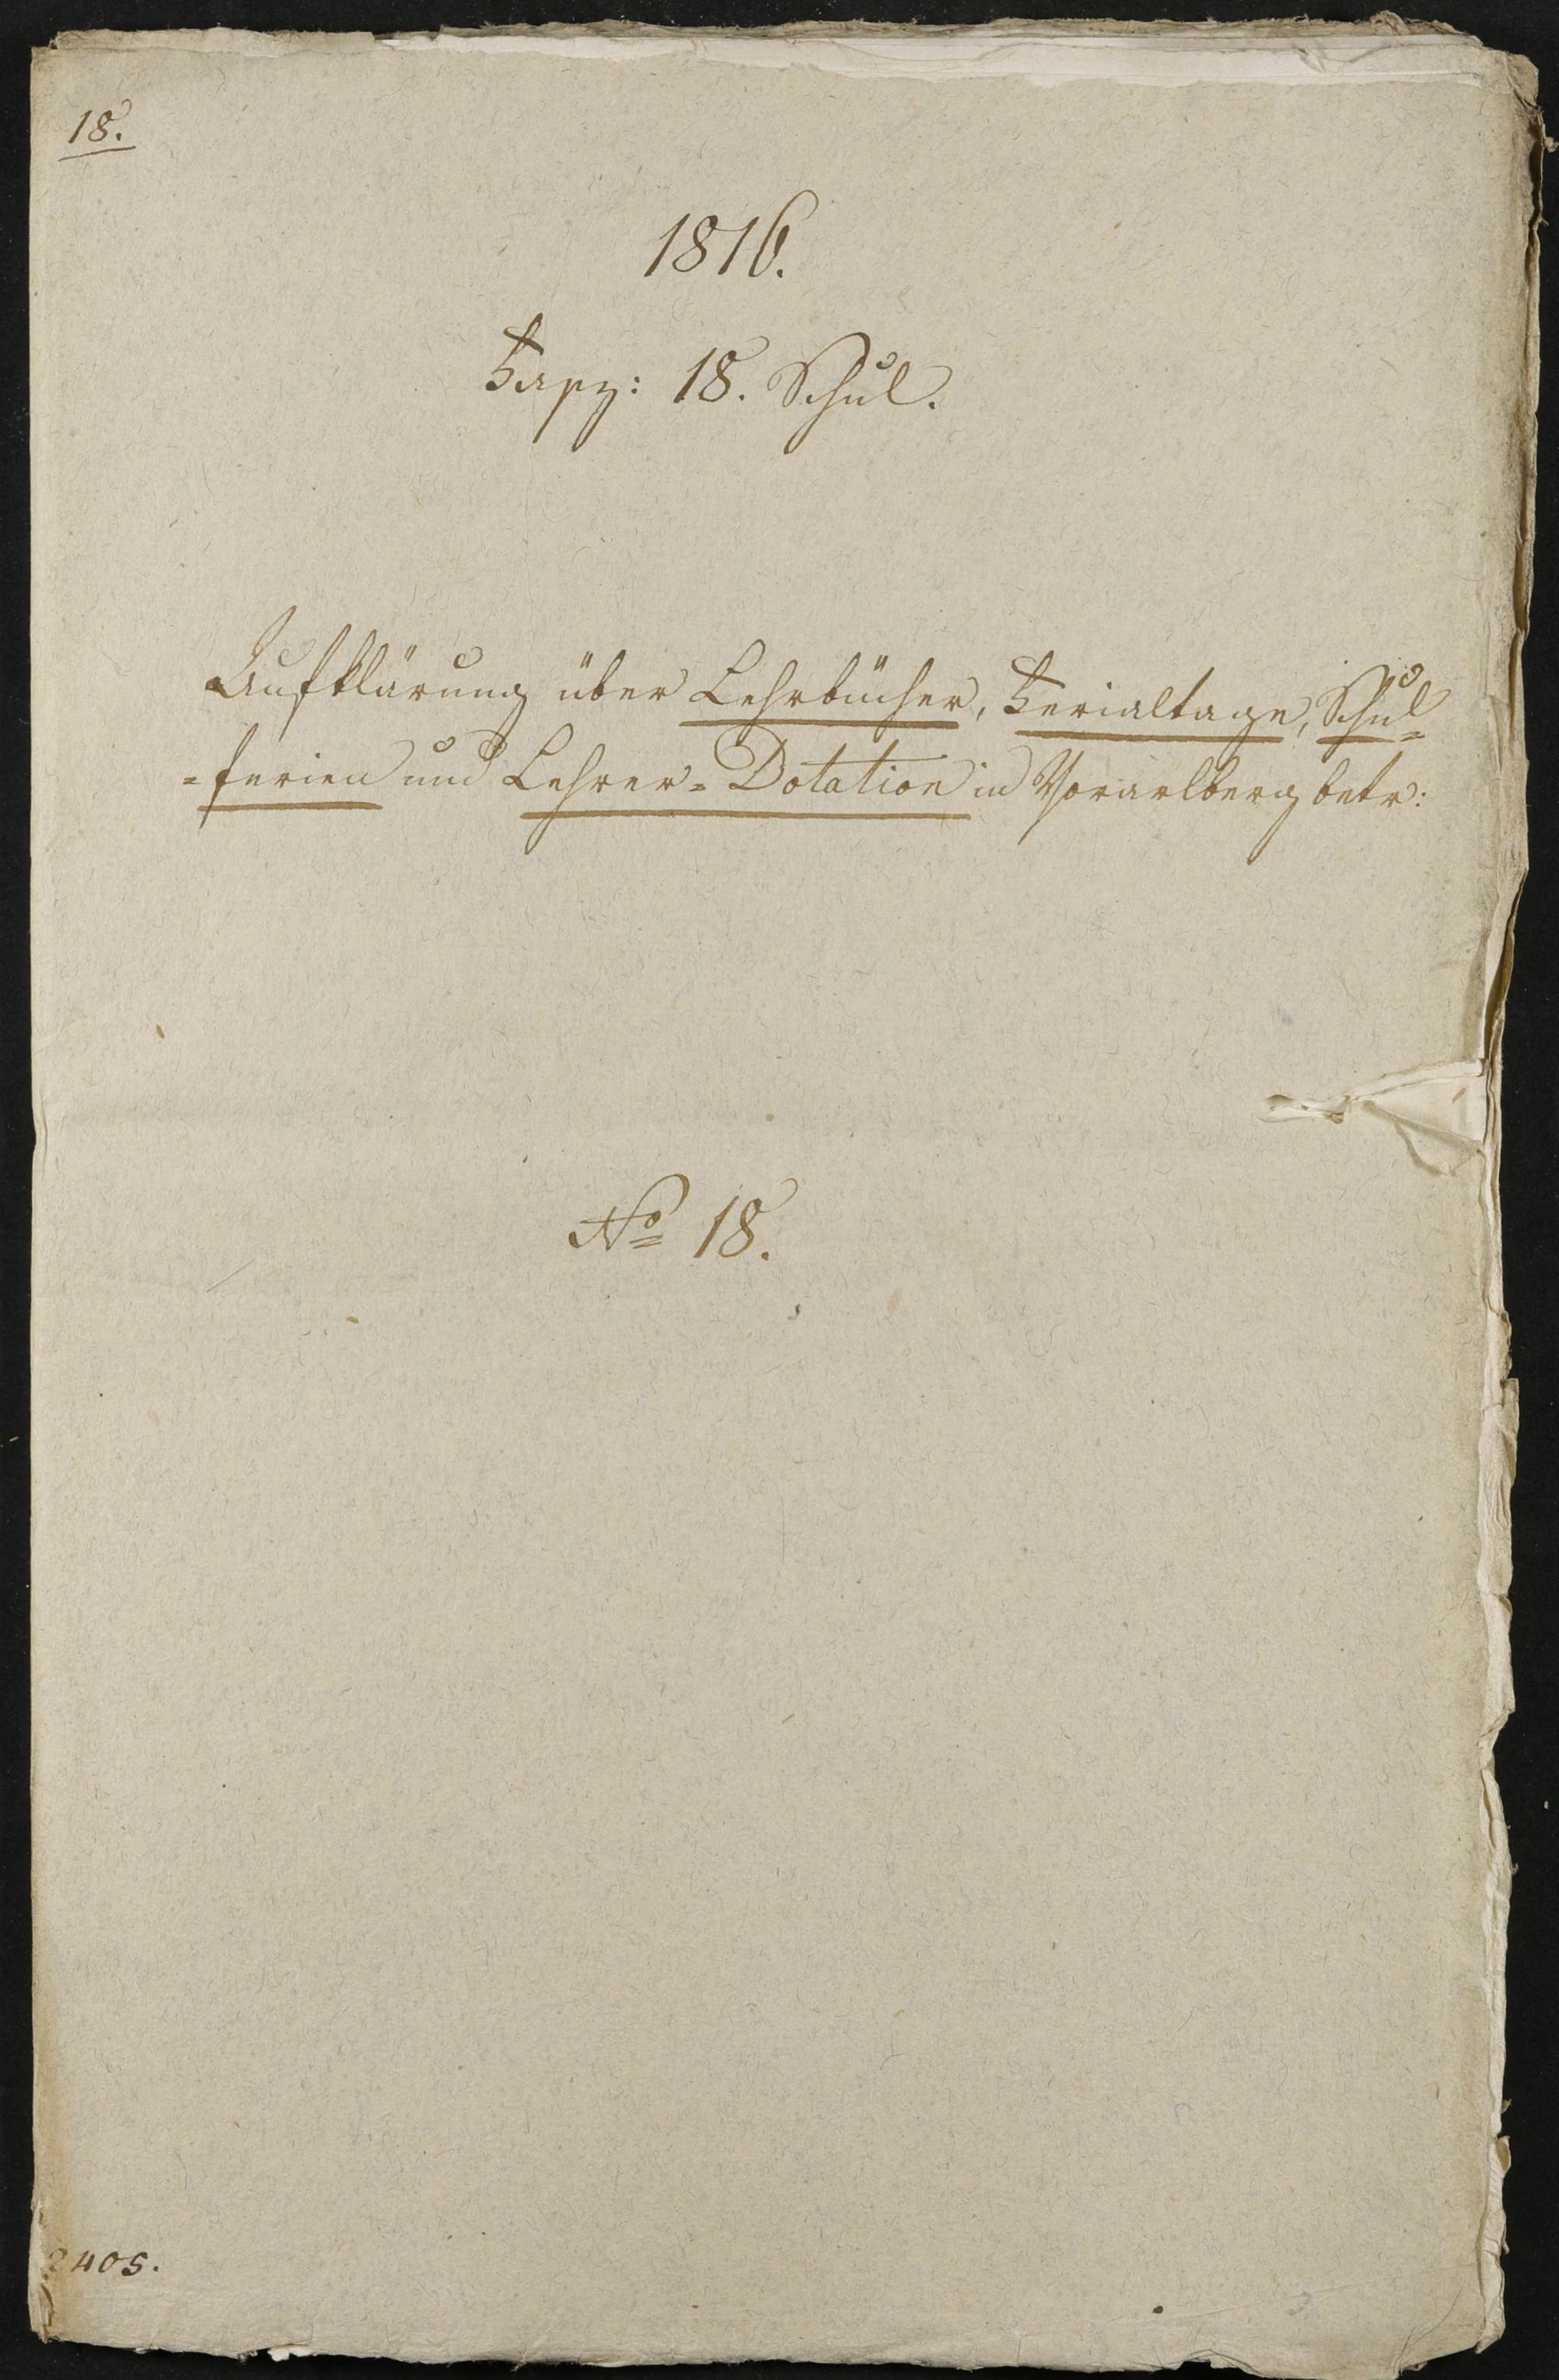 18.
1816.
Fasz: 18. Schul.
Aufklärung über Lehrbücher, Ferialtage, Schul=
=ferien und Lehrer=Dotation in Vorarlberg betr:
No 18.
2405.